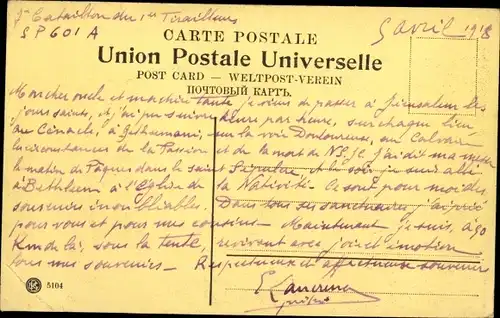 Bataillon du 1er Tirailleurs
SP 601 A
5 avril 1918
CARTE POSTALE
Union Postale Universelle
POST CARD — WELTPOST-VEREIN
ПОЧТОВЫЙ КАРТЪ.
Mon cher oncle et ma chère tante je viens de passer à Jérusalem les
jours saints, et j'ai pu suivre heure par heure, sur chaque lieu
au Cénacle, à Gethsemani, sur la voie Douloureuse, au Calvaire
les circonstances de la Passion et de la mort de N.S. J.C. J'ai dit ma messe
le matin de Pâques dans le saint Sépulcre et le soir je suis allé
à Bethléem à l'Eglise de la Nativité. Ce sont pour moi des
souvenirs inoubliables. Dans tous ces sanctuaires j'ai prié
pour vous et pour mes cousins. Maintenant je suis, à 90
Km de là, sous la tente, revivant avec joie et émotion
tous mes souvenirs. Respectueux et affectueux souvenir
5104